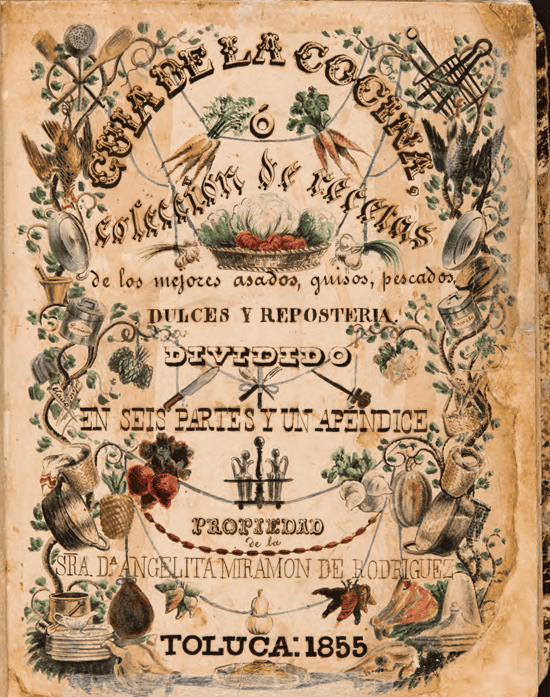 GUIA DE LA COCINA,
Ó
colección de recetas
de los mejores asados, guisos, pescados,
DULCES Y REPOSTERIA.
DIVIDIDO
EN SEIS PARTES Y UN APÉNDICE
PROPIEDAD
de la
SRA. Dª ANGELITA MIRAMON DE RODRIGUEZ
TOLUCA: 1855